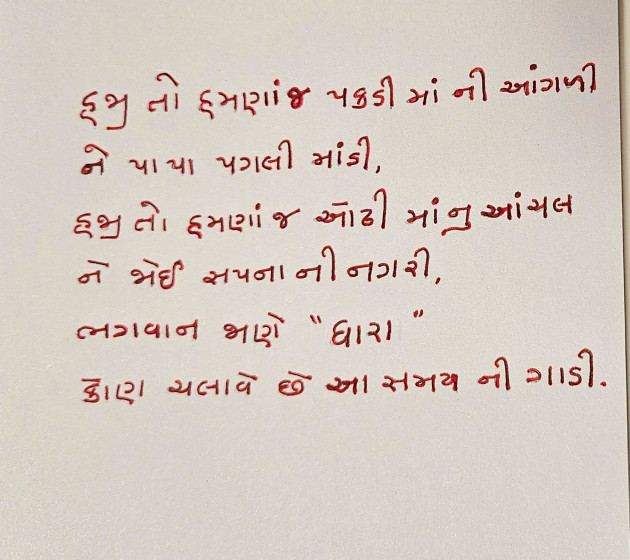 હજી તો હમણાંજ પકડી માં ની આંગળી
ને પા પા પગલી માંડી,
હજી તો હમણાં જ ઓઢી માંનુ આંચલ
ને જોઈ સપના ની નગરી,
ભગવાન જાણે "ધારા"
કોણ ચલાવે છે આ સમય ની ગાડી.